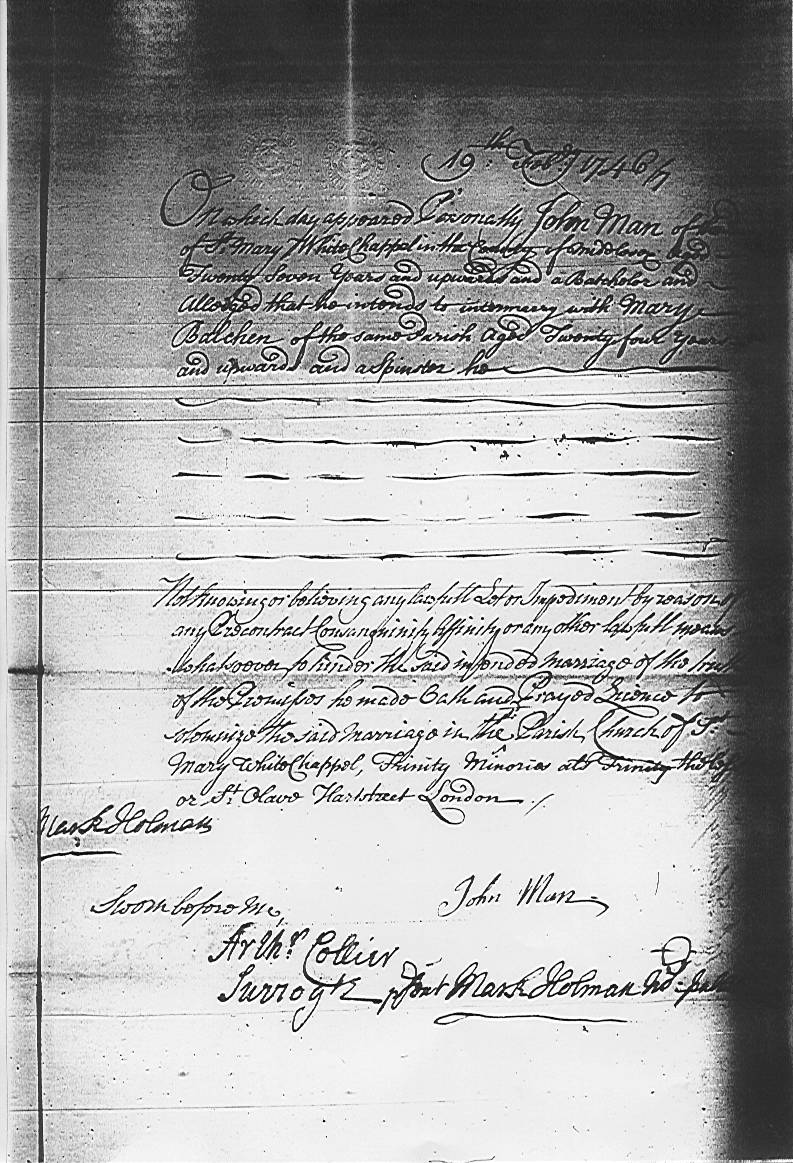 19th Feb:ry 1746/7
On which day appeared Personally John Man of the
of St Mary White Chappel in the County of Middlesex aged
Twenty Seven Years and upwards and a Batchelor and
Alledged that he intends to intermarry with Mary
Balchen of the same Parish Aged Twenty four Years
and upwards and a Spinster he
Not knowing or believing any lawfull Let or Impediment by reason of
any Precontract Consanguinity Affinity or any other lawfull means
whatsoever to hinder the said intended Marriage of the truth
of the Premisses he made Oath and Prayed Licence to
solemnize the said Marriage in the Parish Church of St
Mary White Chappel, Trinity Minories als Trinity the
or St Olave Hartstreet London
Mark Holman
John Man
Sworn before me,
Arthr Collier
Surrogte
Mark Holman